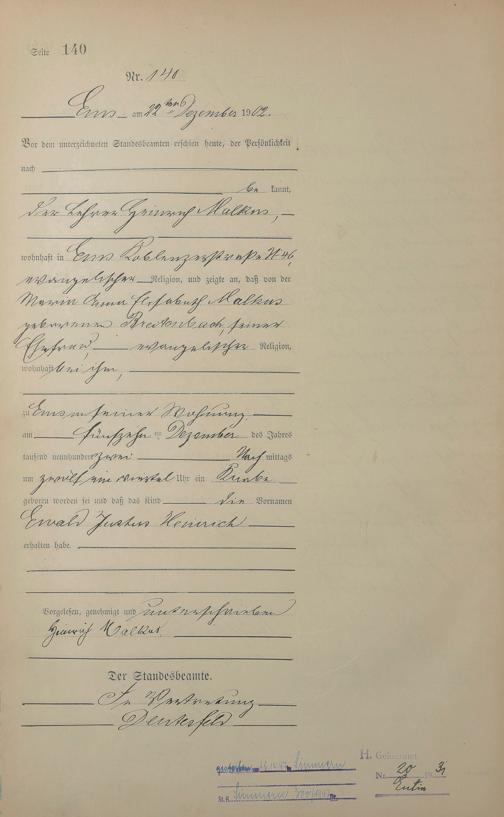 Seite 140
Nr. 140
Ems am 22ten Dezember 1902.
Vor dem unterzeichneten Standesbeamten erschien heute, der Persönlichkeit
nach
be kannt,
der Lehrer Heinrich Malkus,
wohnhaft in Ems Koblenzerstraße No 46,
evangelischer Religion, und zeigte an, daß von der
Maria Anna Elisabeth Malkus
geborenen Breitenbach, seiner
Ehefrau, evangelischer Religion,
wohnhaft bei ihm,
zu Ems in seiner Wohnung
am fünfzehnten Dezember des Jahres
tausend neunhundert zwei Nach mittags
um zwölf ein viertel Uhr ein Knabe
geboren worden sei und daß das Kind die Vornamen
Ewald Justus Heinrich
erhalten habe.
Vorgelesen, genehmigt und unterschrieben
Heinrich Malkus.
Der Standesbeamte.
In Vertretung
Simmern
H.
Nr. 20 31
Eutin
Simmern